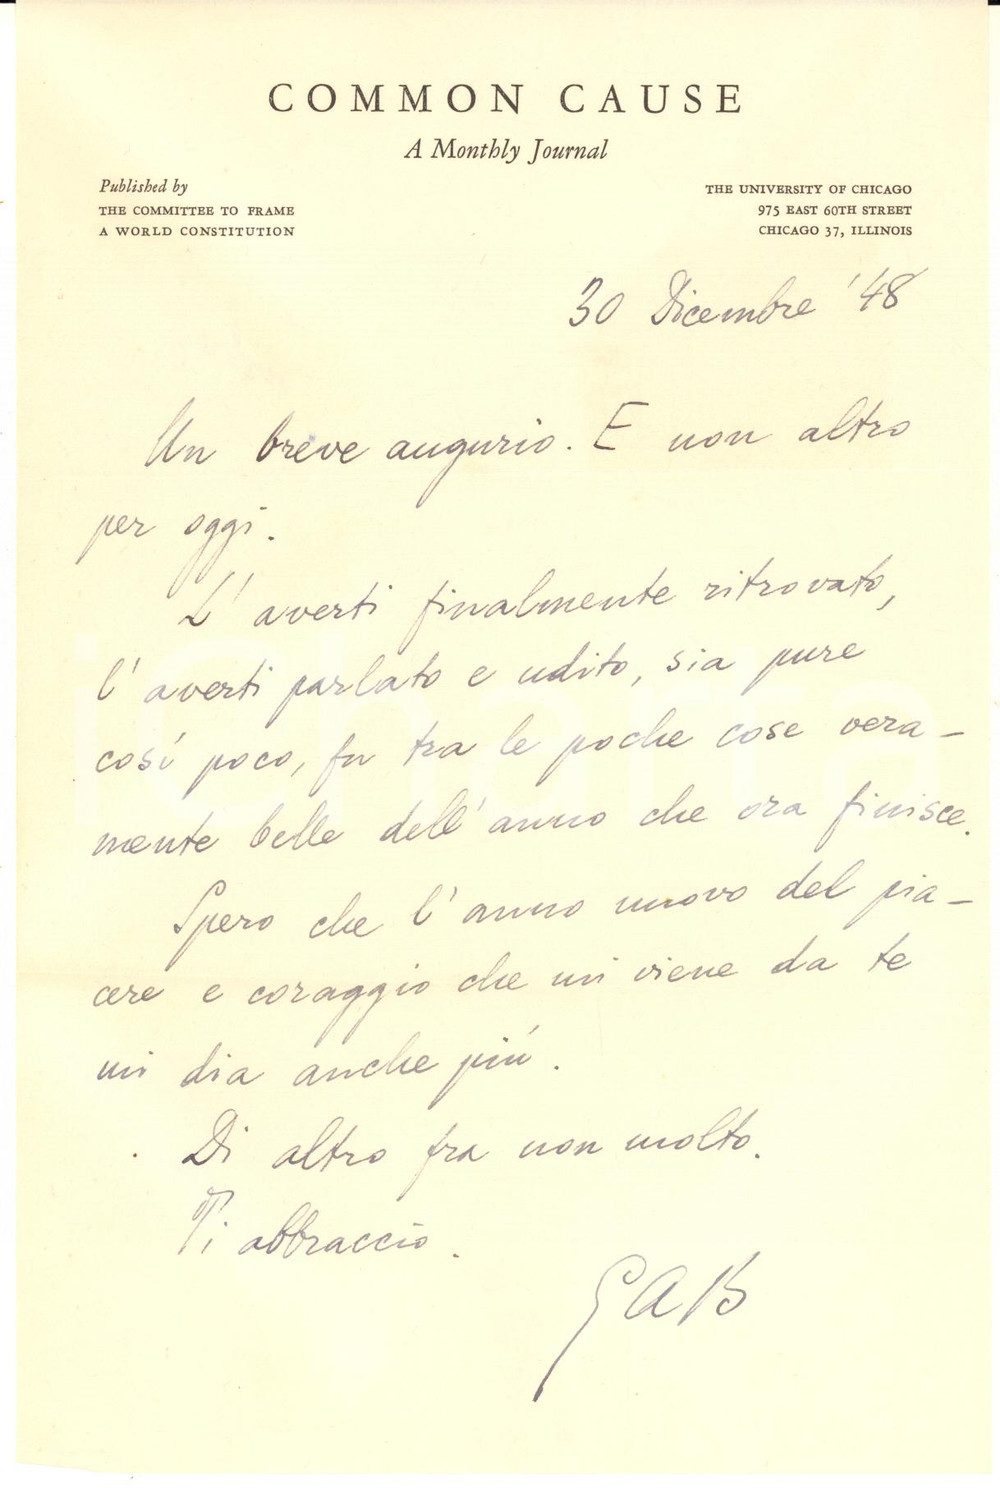 COMMON CAUSE
A Monthly Journal
Published by
THE COMMITTEE TO FRAME
A WORLD CONSTITUTION
THE UNIVERSITY OF CHICAGO
975 EAST 60TH STREET
CHICAGO 37, ILLINOIS
30 Dicembre '48
Un breve augurio. E non altro
per oggi.
L'averti finalmente ritrovato,
l'averti parlato e udito, sia pure
cosí poco, fu tra le poche cose vera-
mente belle dell'anno che ora finisce.
Spero che l'anno nuovo del pia-
cere e coraggio che mi viene da te
mi dia anche piú.
Di altro fra non molto.
Ti abbraccio.
GAB